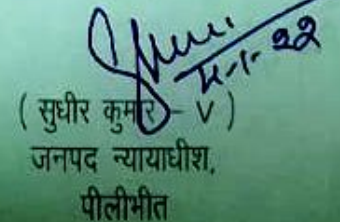 ( सुधीर कुमार - V )
जनपद न्यायाधीश,
पीलीभीत